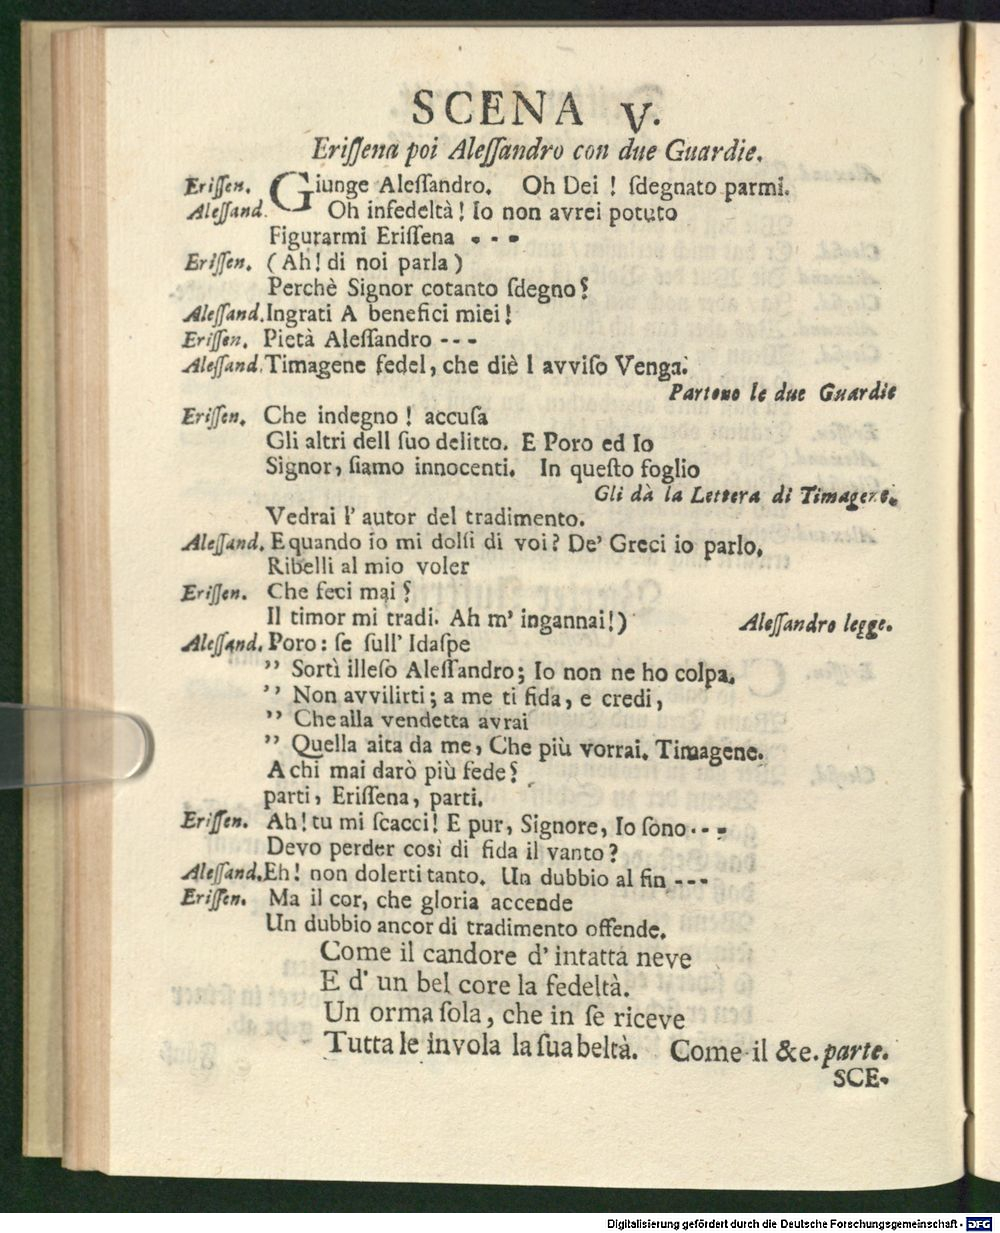 SCENA V.
Eriſſena poi Aleſſandro con due Guardie.
Eriſſen. Giunge Aleſſandro. Oh Dei ! ſdegnato parmi.
Aleſſand. Oh infedeltà ! Io non avrei potuto
Figurarmi Eriſſena - - -
Eriſſen. ( Ah! di noi parla )
Perchè Signor cotanto ſdegno?
Aleſſand. Ingrati A benefici miei !
Eriſſen. Pietà Aleſſandro - - -
Aleſſand. Timagene fedel, che diè l avviſo Venga.
Partono le due Guardie
Eriſſen. Che indegno ! accuſa
Gli altri dell ſuo delitto. E Poro ed Io
Signor, ſiamo innocenti. In queſto foglio
Gli dà la Lettera di Timagene.
Vedrai l' autor del tradimento.
Aleſſand. E quando io mi dolſi di voi? De' Greci io parlo,
Ribelli al mio voler
Eriſſen. Che feci mai ?
Il timor mi tradi. Ah m' ingannai!)
Aleſſandro legge.
Aleſſand. Poro: ſe ſull' Idaſpe
” Sortì illeſo Aleſſandro; Io non ne ho colpa.
” Non avvilirti; a me ti fida, e credi,
” Che alla vendetta avrai
” Quella aita da me, Che più vorrai. Timagene.
A chi mai darò più fede?
parti, Eriſſena, parti.
Eriſſen. Ah! tu mi ſcacci! E pur, Signore, Io ſono - - -
Devo perder così di fida il vanto?
Aleſſand. Eh! non dolerti tanto. Un dubbio al fin - - -
Eriſſen. Ma il cor, che gloria accende
Un dubbio ancor di tradimento offende.
Come il candore d' intatta neve
E d' un bel core la fedeltà.
Un orma ſola, che in ſe riceve
Tutta le invola la ſua beltà. Come il &c. parte.
SCE-
Digitalisierung gefördert durch die Deutsche Forschungsgemeinschaft - DFG